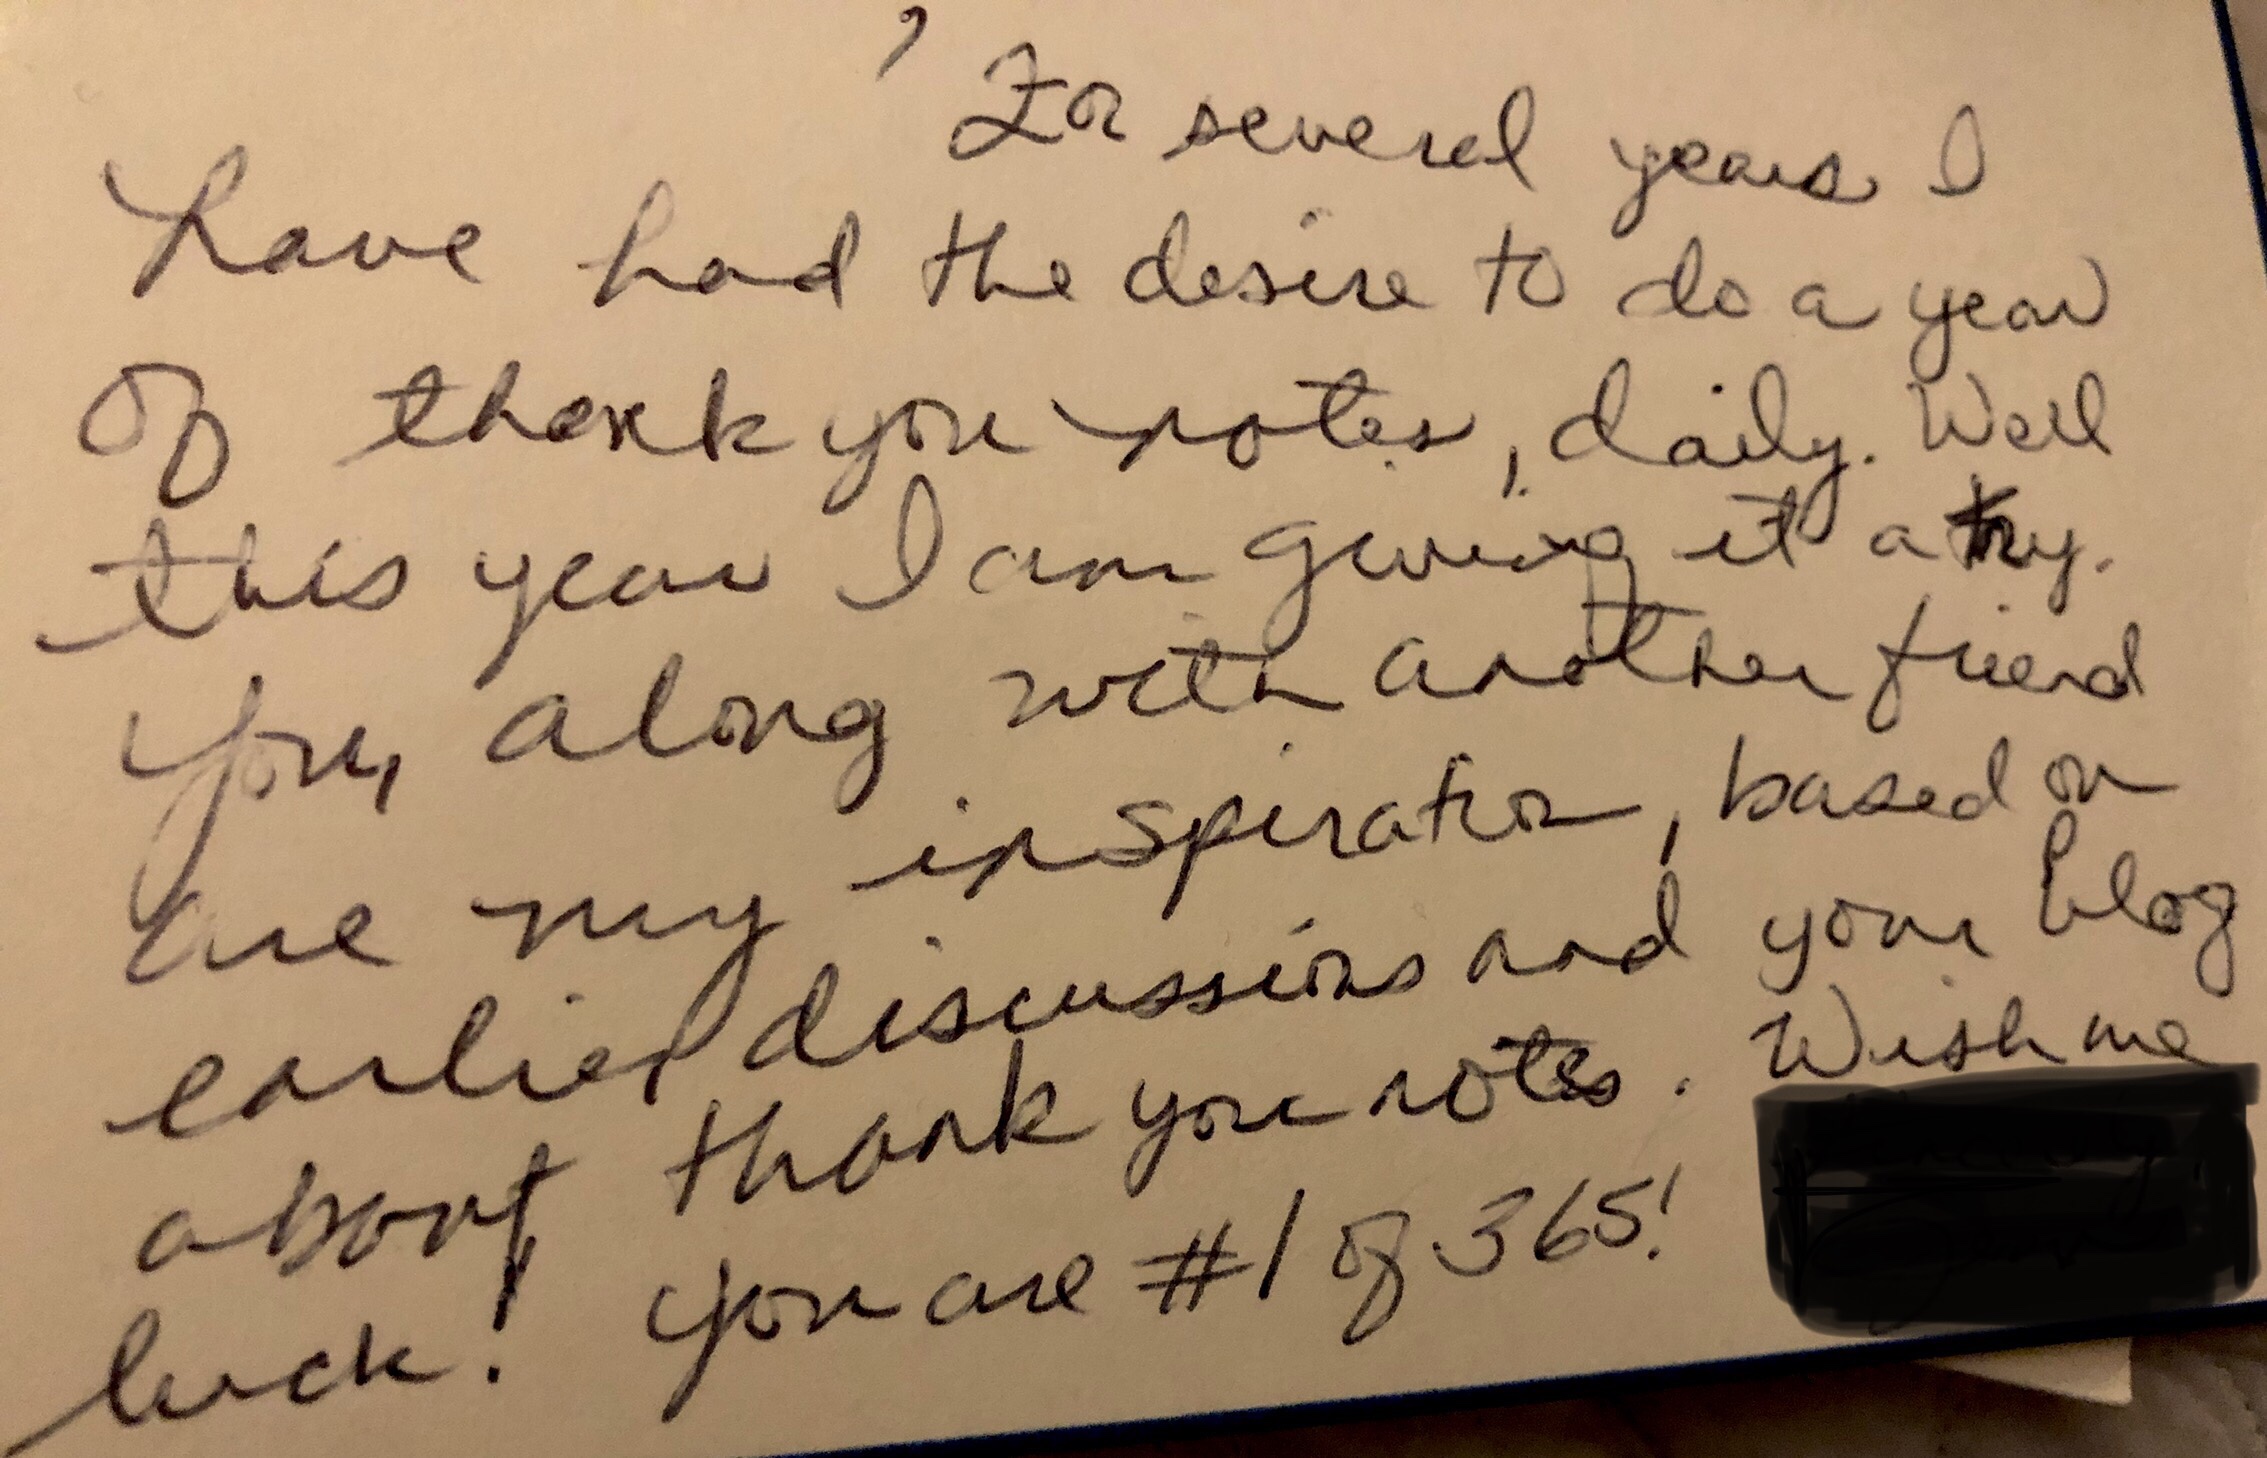 , For several years I
have had the desire to do a year
of thank you notes, daily. Well
this year I am giving it a try.
You, along with another friend
are my inspiration, based on
earlier discussions and your blog
about thank you notes. Wish me
luck! You are #1 of 365!